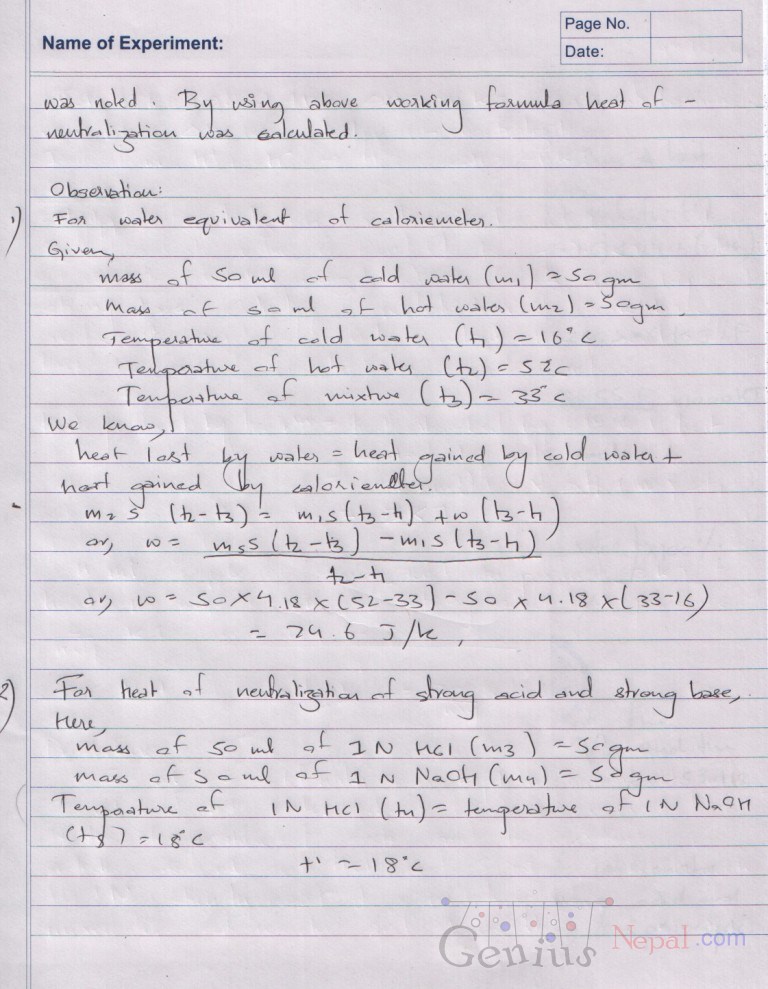 Page No.
Name of Experiment:
Date:
was noted. By using above working formula heat of -
neutralization was calculated.
Observation:
1) For water equivalent of caloriemeter.
Given,
mass of 50 ml of cold water (m₁) = 50 gm
mass of 50 ml of hot water (m₂) = 50 gm.
Temperature of cold water (t₁) = 16°C
Temperature of hot water (t₂) = 52°C
Temperature of mixture (t₃) = 33°C
We know,
heat lost by water = heat gained by cold water +
heat gained by caloriemeter.
m₂ s (t₂-t₃) = m₁s (t₃-t₁) + w (t₃-t₁)
or, w = m₅s (t₂-t₃) - m₁s (t₃-t₁)
t₂-t₁
or, w = 50 x 4.18 x (52-33) - 50 x 4.18 x (33-16)
= 24.6 J/k,
2) For heat of neutralization of strong acid and strong base,
Here,
mass of 50 ml of 1N HCl (m₃) = 50 gm
mass of 50 ml of 1N NaOH (m₄) = 50 gm
Temperature of 1N HCl (t₄) = temperature of 1N NaOH
(t₅) = 18°C
t' = 18°C
Genius Nepal.com